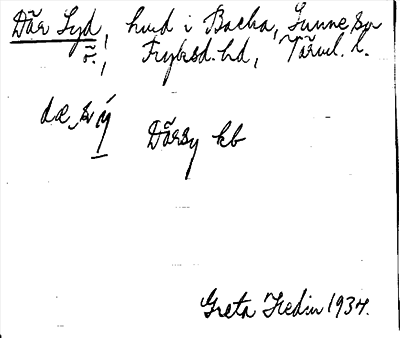 Där Syd, hmd i Backa, Sunne sn
ö., Fryksd. hd, Värml. l.
dæ, sý
Därsy kb
Greta Hedin 1934.